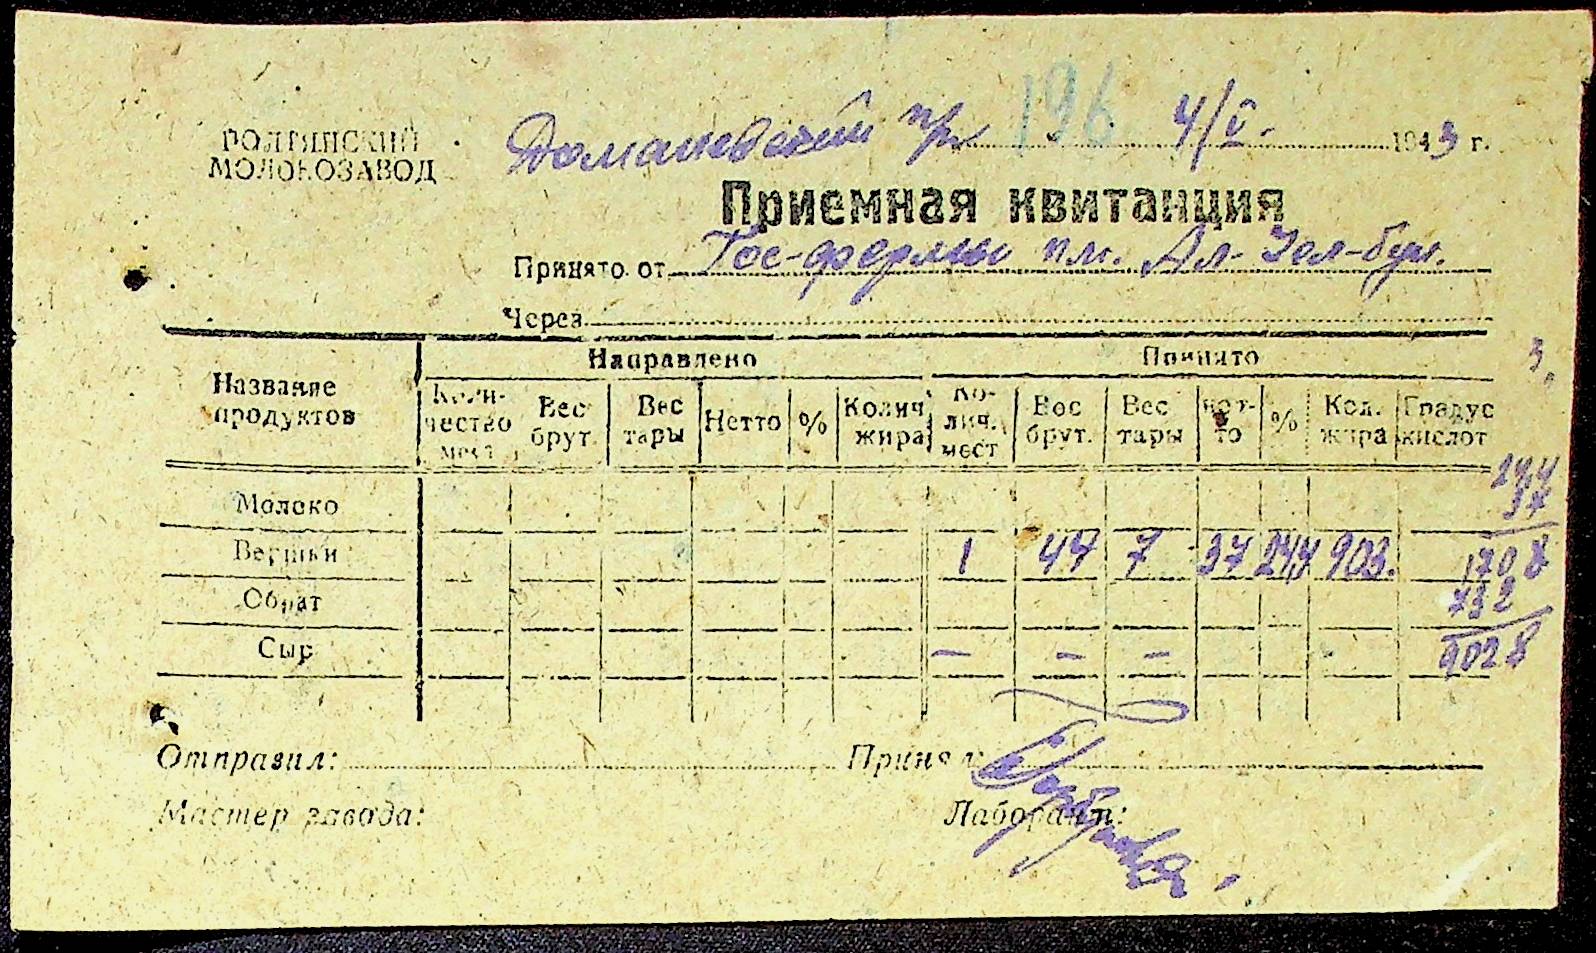 МОЛОКОЗАВОД
Доманевский п/п 196 4/V. 1943 г.
Приемная квитанция
Принято от Гос-фермы им.
Через
Название продуктов Направлено Принято
Количество мест Вес брут. Вес тары Нетто % Колич жира Колич. мест Вес брут. Вес тары Нетто % Кол. жира Градус кислот
3
24,4
37
Молоко
Вершки 1 44 7 37 24,4 903. 1708
Обрат 732
Сыр — — — 9028
Отправил: Принял:
Мастер завода: Лаборант: